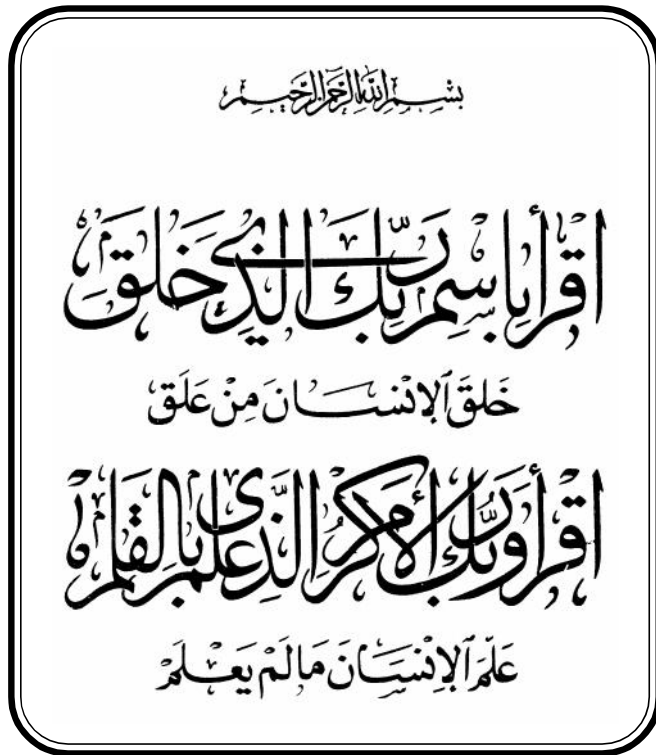 بسم الله الرحمن الرحيم
اقرأ باسم ربك الذي خلق
خَلَقَ ٱلْإِنْسَانَ مِنْ عَلَقٍ
اقرأ وربك الأكرم الذي علم بالقلم
عَلَّمَ ٱلْإِنْسَانَ مَا لَمْ يَعْلَمْ